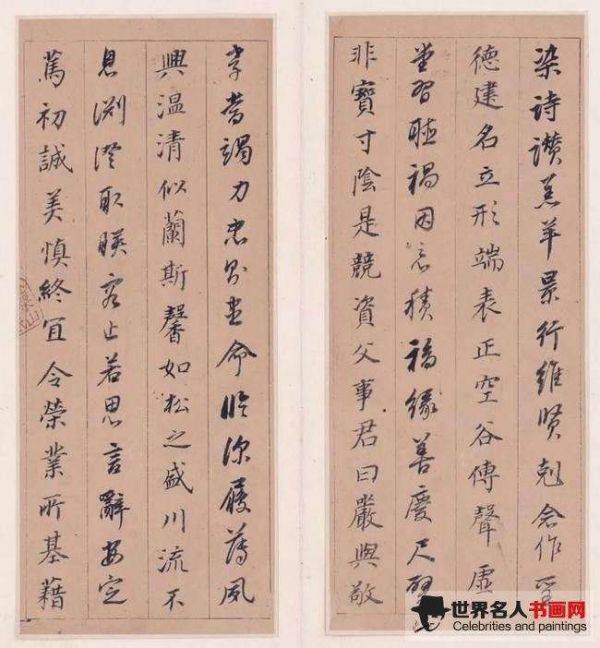 染詩讃羔羊景行維賢剋念作聖
德建名立形端表正空谷傳聲虛
堂習聽禍因惡積福緣善慶尺璧
非寶寸陰是競資父事君曰嚴與敬
孝當竭力忠則盡命臨深履薄夙
興温清似蘭斯馨如松之盛川流不
息淵澄取暎容止若思言辭安定
篤初誠美慎終宜令榮業所基藉
世界名人书画网
Celebrities and paintings